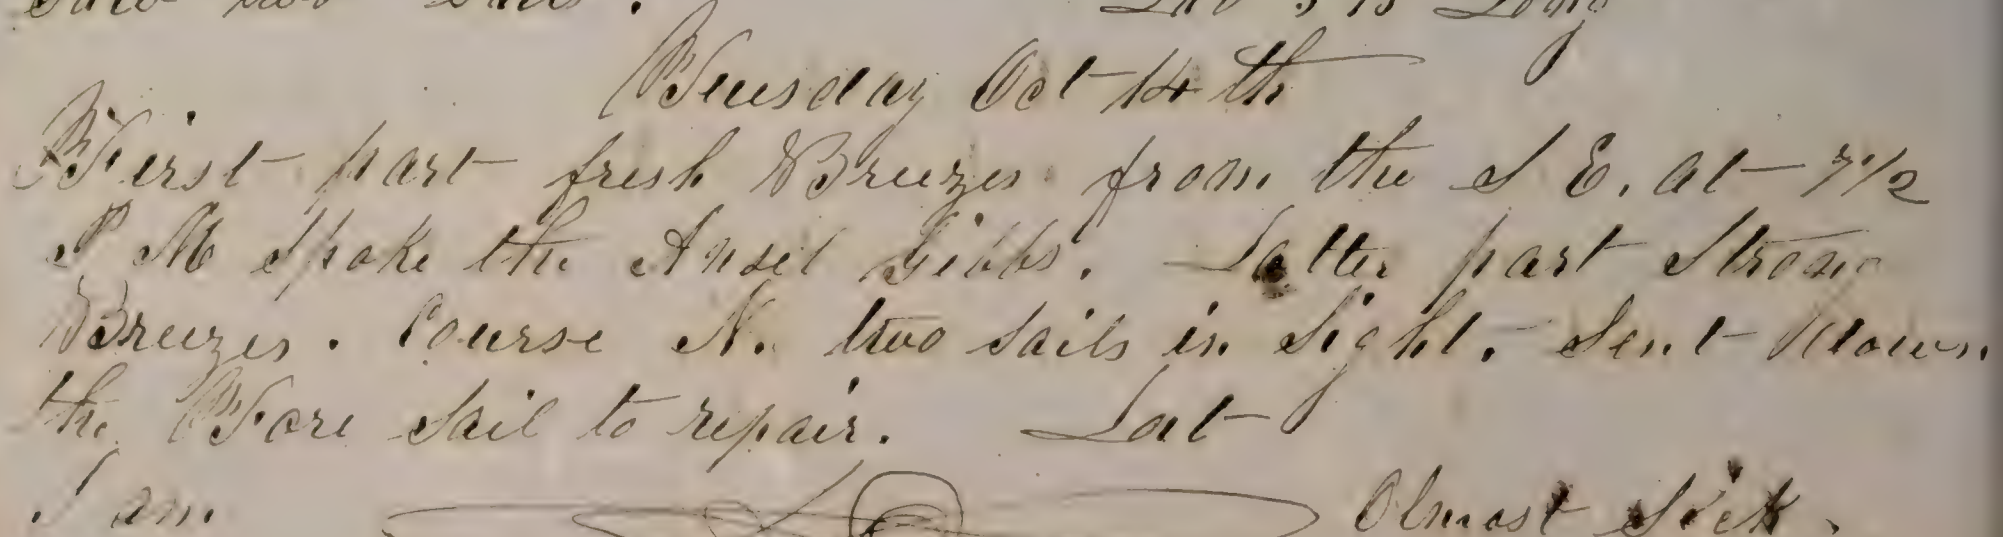 two Sails. Lat 3 15 Long
Tuesday Oct 14th
First part fresh Breezes from the S E. at 7 1/2
P M Spoke the Ansel Gibbs. Latter part Strong
Breezes. Course N. two Sails in Sight. Sent down
the Fore Sail to repair. Lat
I am Almost Sick.